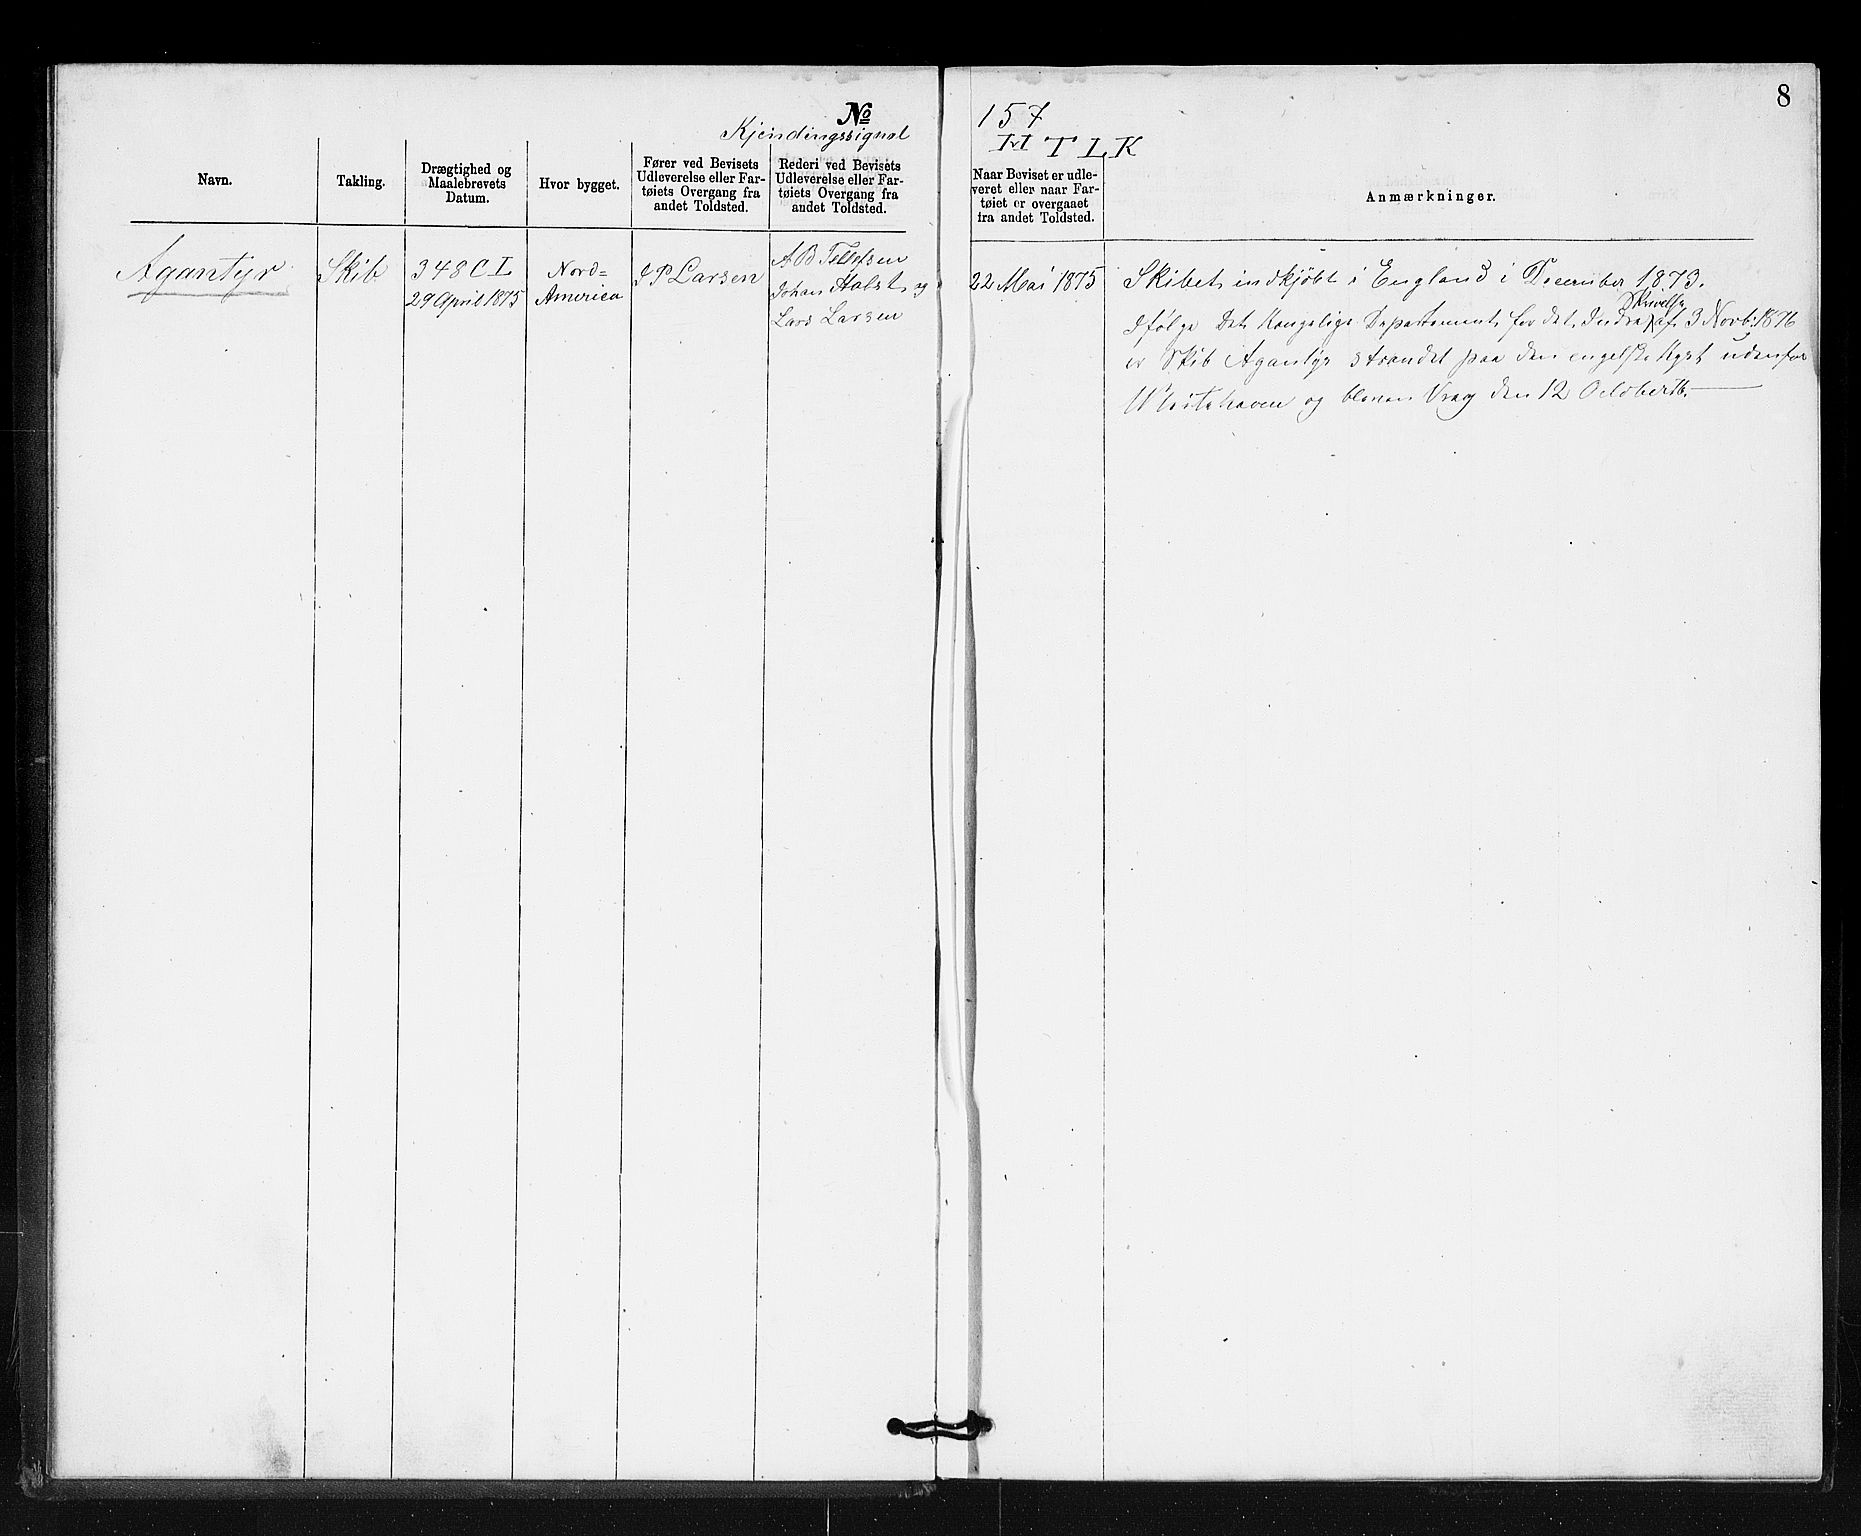 8
No 157
Kjendingssignal
H T L K
Navn.
Takling.
Drægtighed og
Maalebrevets
Datum.
Hvor bygget.
Fører ved Bevisets
Udleverelse eller Far-
tøiets Overgang fra
andet Toldsted.
Rederi ved Bevisets
Udleverelse eller Far-
tøiets Overgang fra
andet Toldsted.
Naar Beviset er udle-
veret eller naar Far-
tøiet er overgaaet
fra andet Toldsted.
Anmærkninger.
Agantyr
Skib
348 C L
29 April 1875
Nord=
America
J P Larsen
A B Tellefsen
Johan Holst og
Lars Larsen
22 Mai 1875
Skibet indkjøbt i England i December 1873.
Skrivelse
Ifølge Det Kongelige Departement for det Indre af 3 Novb: 1876
er Skib Agantyr strandet paa den engelske Kyst udenfor
Whitehaven og bleven Vrag den 12 October 76.